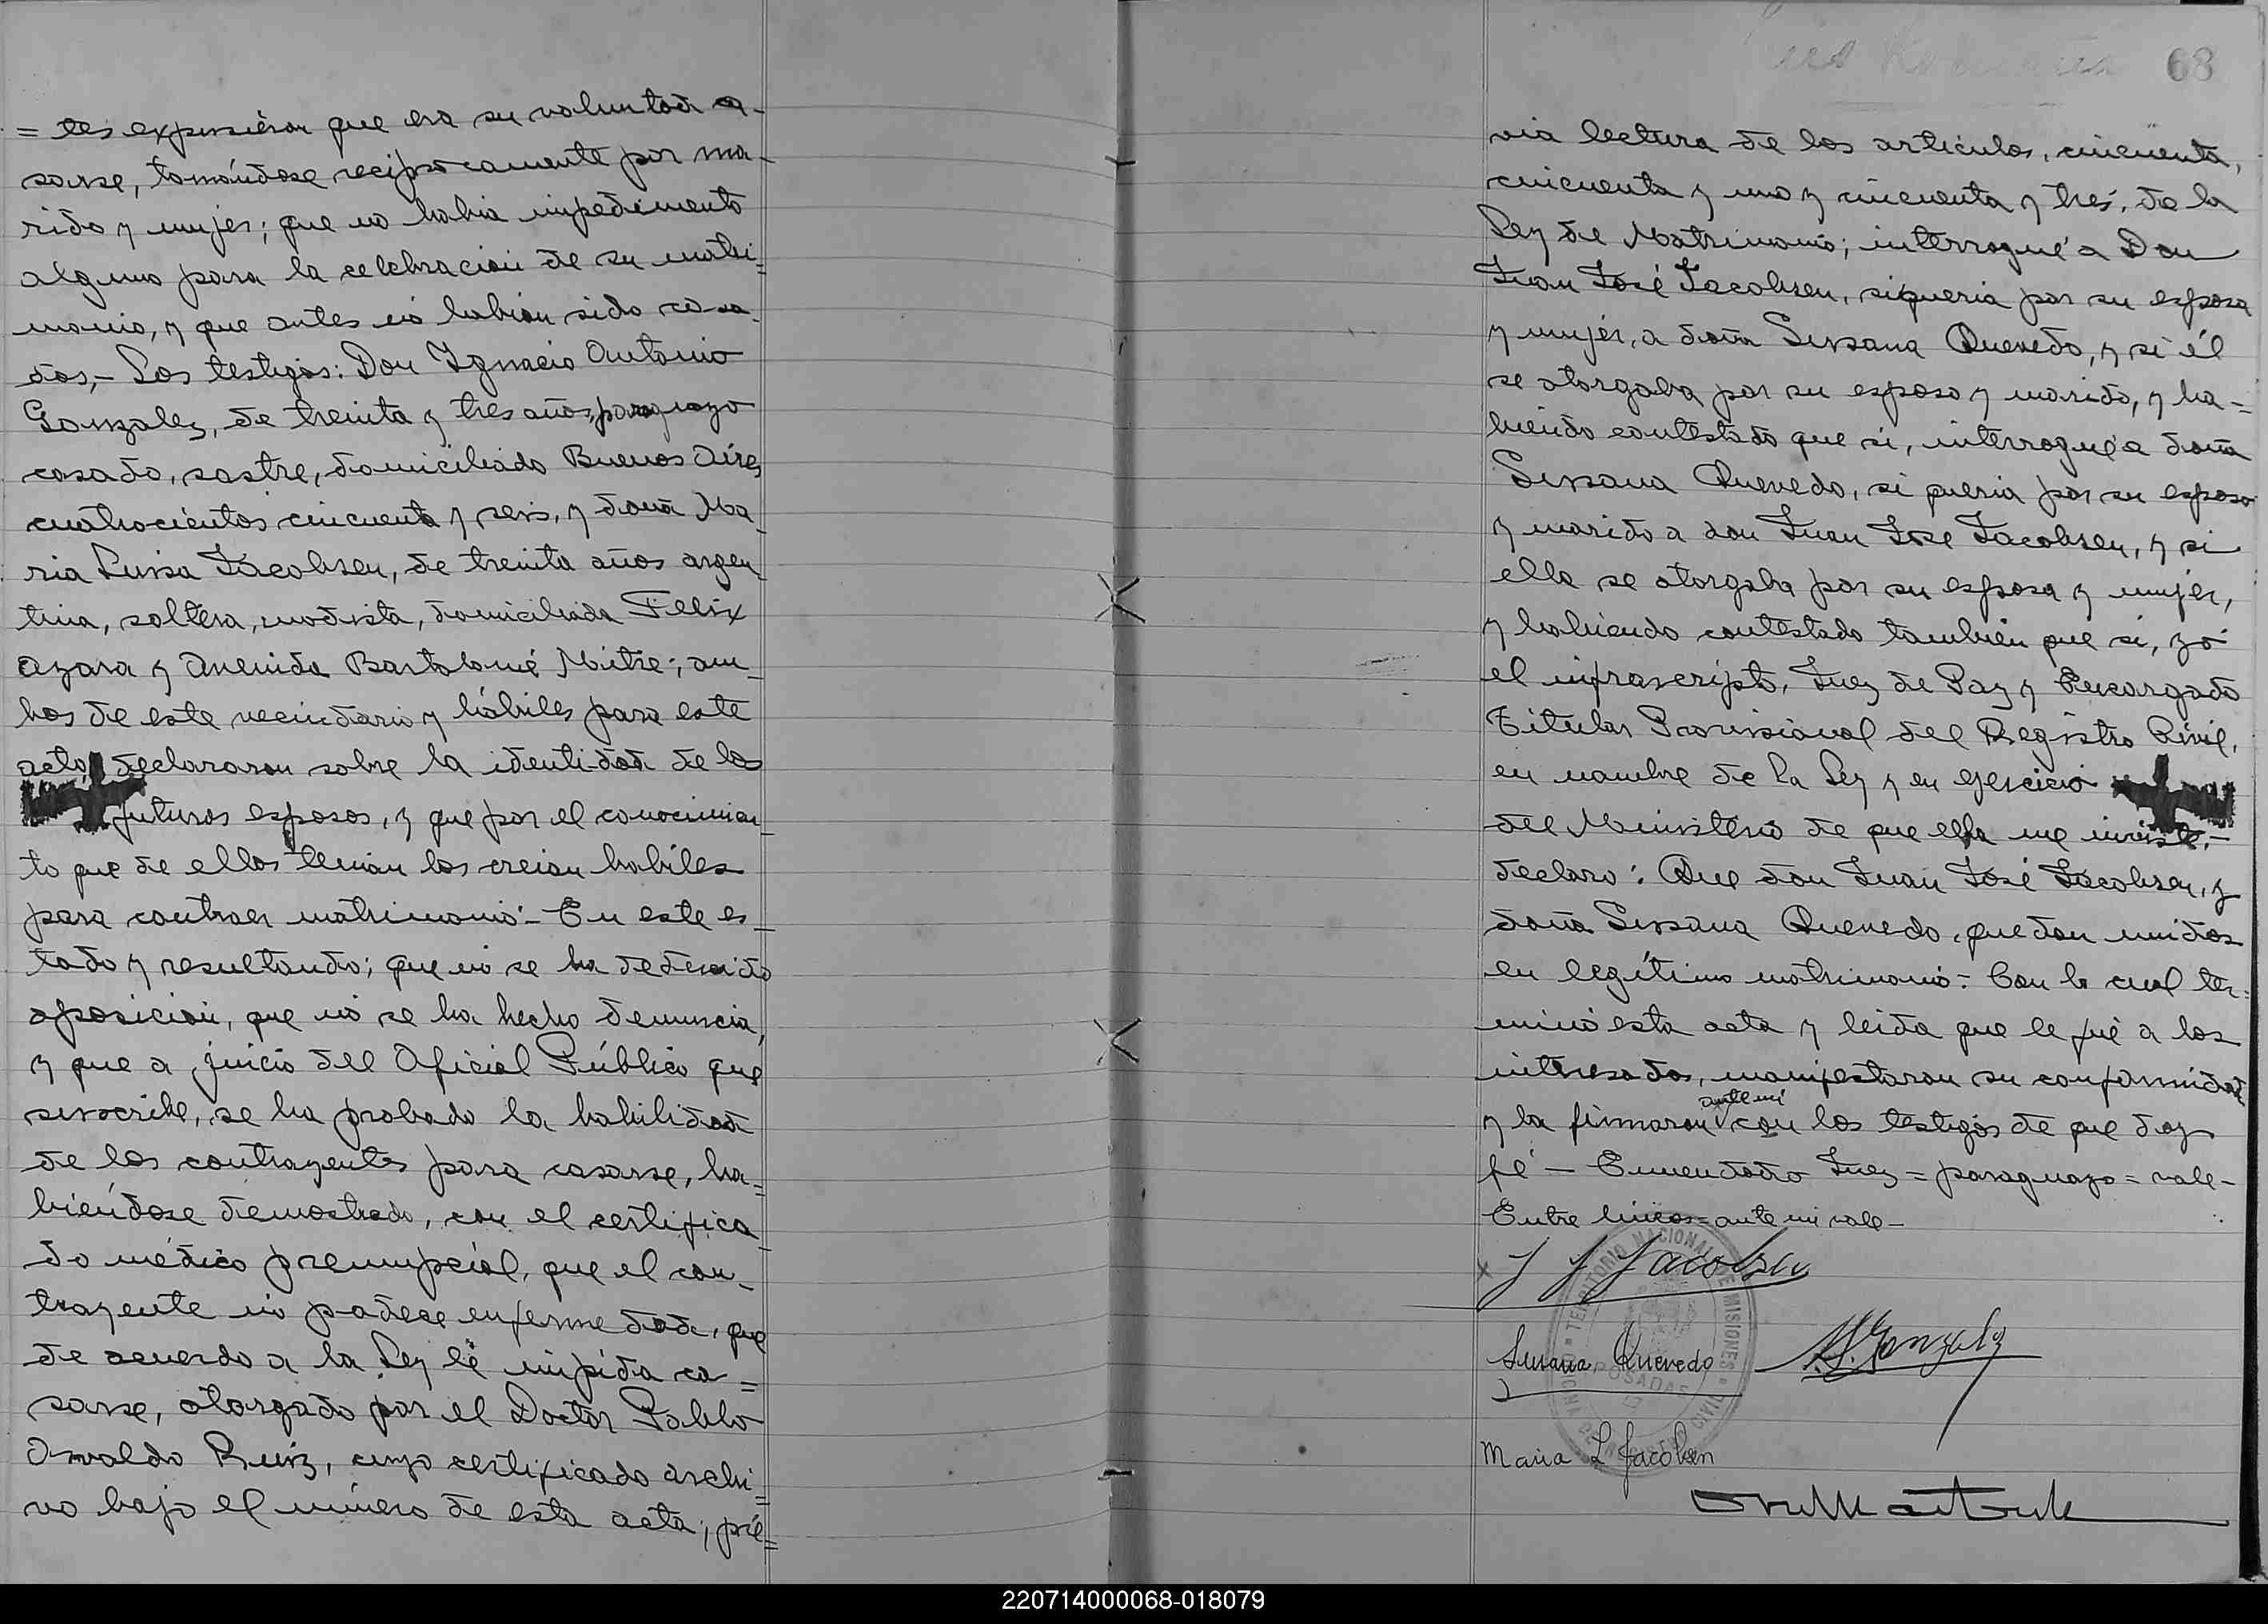 = tes expusieron que era su voluntad ca-
sarse, tomándose reciprocamente por ma-
rido y mujer; que no habia impedimento
alguno para la celebracion de su matri=
monio, y que antes no habian sido casa-
dos.- Los testigos: Don Ignacio Antonio
Gonzalez, de treinta y tres años, paraguayo
casado, sastre, domiciliado Buenos Aires
cuatrocientos cincuenta y seis, y doña Ma-
ria Luisa Jacobsen, de treinta años argen-
tina, soltera, modista, domiciliada Felix
Azara y Avenida Bartolomé Mitre; am-
bos de este vecindario y hábiles para este
acto, declararon sobre la identidad de los
futuros esposos, y que por el conocimien-
to que de ellos tenian los creian habiles
para contraer matrimonio.- En este es-
tado y resultando; que no se ha deducido
oposicion, que no se ha hecho denuncia,
y que a juicio del Oficial Público que
suscribe, se ha probado la habilidad
de los contrayentes para casarse, ha=
biéndose demostrado, con el certifica-
do médico prenupcial, que el con-
trayente no padece enfermedad, que
de acuerdo a la Ley le impida ca=
sarse, otorgado por el Doctor Pablo
Osvaldo Ruiz, cuyo certificado archi=
vo bajo el número de esta acta; pré=
68
via lectura de los articulos, cincuenta,
cincuenta y uno y cincuenta y tres, de la
Ley de Matrimonio; interrogué a Don
Juan José Jacobsen, si queria por su esposa
y mujer, a doña Susana Quevedo, y si él
se otorgaba por su esposo y marido, y ha=
biendo contestado que si, interrogué a doña
Susana Quevedo, si queria por su esposo
y marido a don Juan José Jacobsen, y si
ella se otorgaba por su esposa y mujer,
y habiendo contestado también que si, yo
el infrascripto, Juez de Paz y Encargado
Titular Provisional del Registro Civil,
en nombre de la Ley y en ejercicio
del Ministerio de que ella me inviste.-
declaro: Que don Juan José Jacobsen, y
doña Susana Quevedo, quedan unidos
en legítimo matrimonio.- Con lo cual ter=
minó esta acta y leida que le fué a los
interesados, manifestaron su conformidad
ante mi
y la firmaron con los testigos de que doy
fé - Enmendado Juez = paraguayo = vale -
Entre lineas = ante mi vale -
J J Jacobsen
Susana Quevedo
Gonzalez
Maria L Jacobsen
TERRITORIO NACIONAL DE MISIONES
POSADAS
220714000068-018079